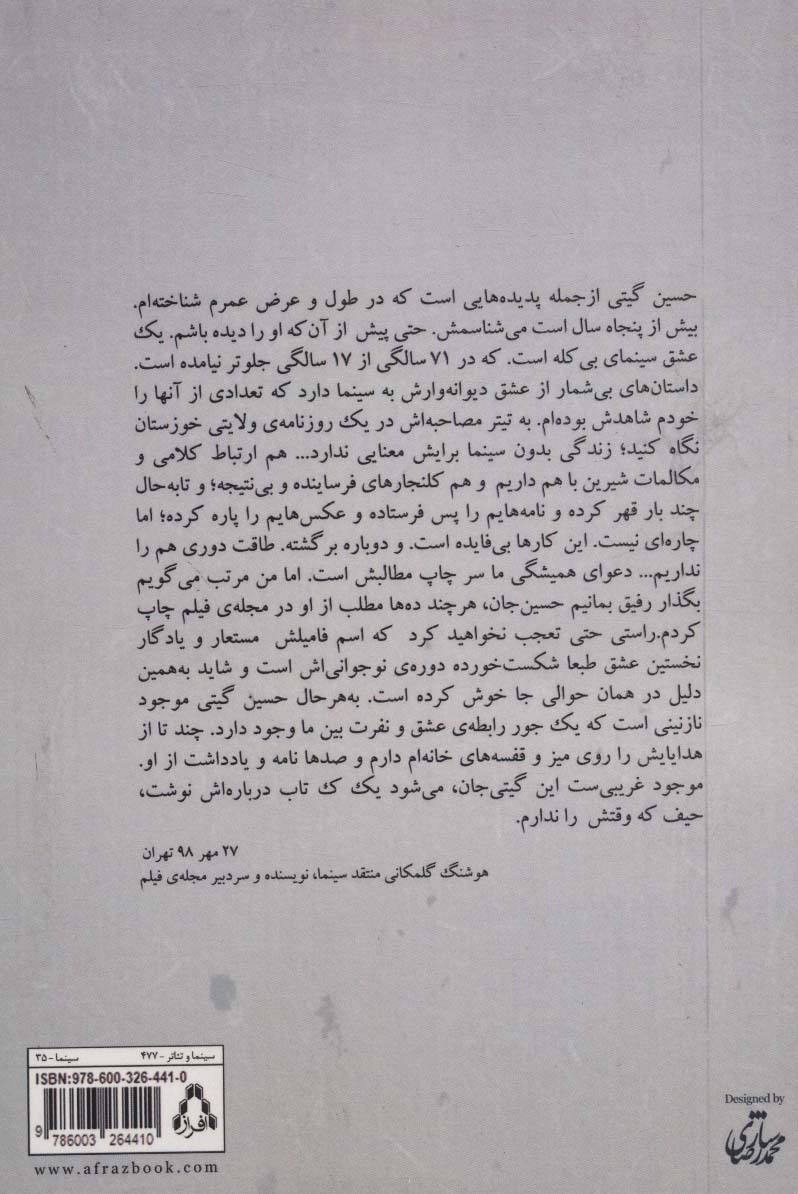 حسین گیتی ازجمله پدیده‌هایی است که در طول و عرض عمرم شناخته‌ام.
بیش از پنجاه سال است می‌شناسمش. حتی پیش از آن‌که او را دیده باشم. یک
عشق سینمای بی‌کله است. که در ۷۱ سالگی از ۱۷ سالگی جلوتر نیامده است.
داستان‌های بی‌شمار از عشق دیوانه‌وارش به سینما دارد که تعدادی از آنها را
خودم شاهدش بوده‌ام. به تیتر مصاحبه‌اش در یک روزنامه‌ی ولایتی خوزستان
نگاه کنید؛ زندگی بدون سینما برایش معنایی ندارد... هم ارتباط کلامی و
مکالمات شیرین با هم داریم و هم کلنجارهای فرساینده و بی‌نتیجه؛ و تابه‌حال
چند بار قهر کرده و نامه‌هایم را پس فرستاده و عکس‌هایم را پاره کرده؛ اما
چاره‌ای نیست. این کارها بی‌فایده است. و دوباره برگشته. طاقت دوری هم را
نداریم... دعوای همیشگی ما سر چاپ مطالبش است. اما من مرتب می‌گویم
بگذار رفیق بمانیم حسین‌جان، هرچند ده‌ها مطلب از او در مجله‌ی فیلم چاپ
کردم.راستی حتی تعجب نخواهید کرد که اسم فامیلش مستعار و یادگار
نخستین عشق طبعا شکست‌خورده دوره‌ی نوجوانی‌اش است و شاید به‌همین
دلیل در همان حوالی جا خوش کرده است. به‌هرحال حسین گیتی موجود
نازنینی است که یک جور رابطه‌ی عشق و نفرت بین ما وجود دارد. چند تا از
هدایایش را روی میز و قفسه‌های خانه‌ام دارم و صدها نامه و یادداشت از او.
موجود غریبی‌ست این گیتی‌جان، می‌شود یک ک تاب درباره‌اش نوشت،
حیف که وقتش را ندارم.
۲۷ مهر ۹۸ تهران
هوشنگ گلمکانی منتقد سینما، نویسنده و سردبیر مجله‌ی فیلم
سینما و تئاتر - ۴۷۷ سینما - ۳۵
ISBN:978-600-326-441-0
افراز
9 786003 264410
www.afrazbook.com
Designed by